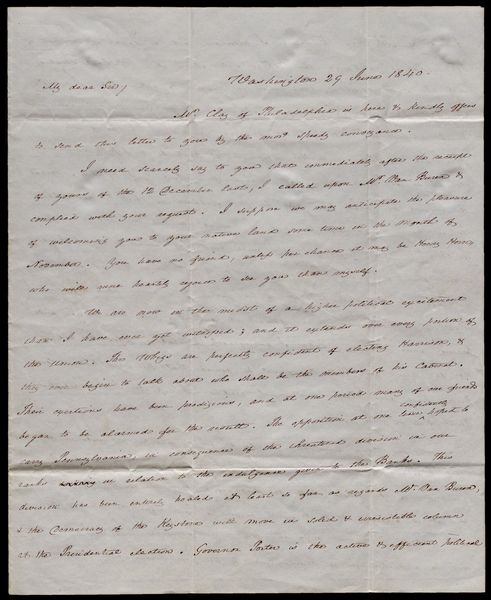 Washington 29 June 1840.
My dear Sir/
Mr. Clay of Philadelphia is here & kindly offers
to send this letter to you by the most speedy conveyance.
I need scarcely say to you that immediately after the receipt
of yours of the 12 December last, I called upon Mr. Van Buren &
complied with your request. I suppose we may anticipate the pleasure
of welcoming you to your native land some time in the month of
November. You have no friend, unless per chance it may be Henry Horn,
who will more heartily rejoice to see you than myself.
We are now in the midst of a higher political excitement
than I have ever yet witnessed; and it extends over every portion of
the Union. The Whigs are perfectly confident of electing Harrison, &
they even begin to talk about who shall be the members of his Cabinet.
Their exertions have been prodigious; and at one period many of our friends
began to be alarmed for the result. The opposition at one time confidently hoped to
carry Pennsylvania in consequence of the threatened division in our
ranks in relation to the indulgence given to the Banks. This
division has been entirely healed at least so far as regards Mr. Van Buren,
& the Democracy of the Keystone will move in solid & irresistible column
at the Presidential election. Governor Porter is the active & efficient political